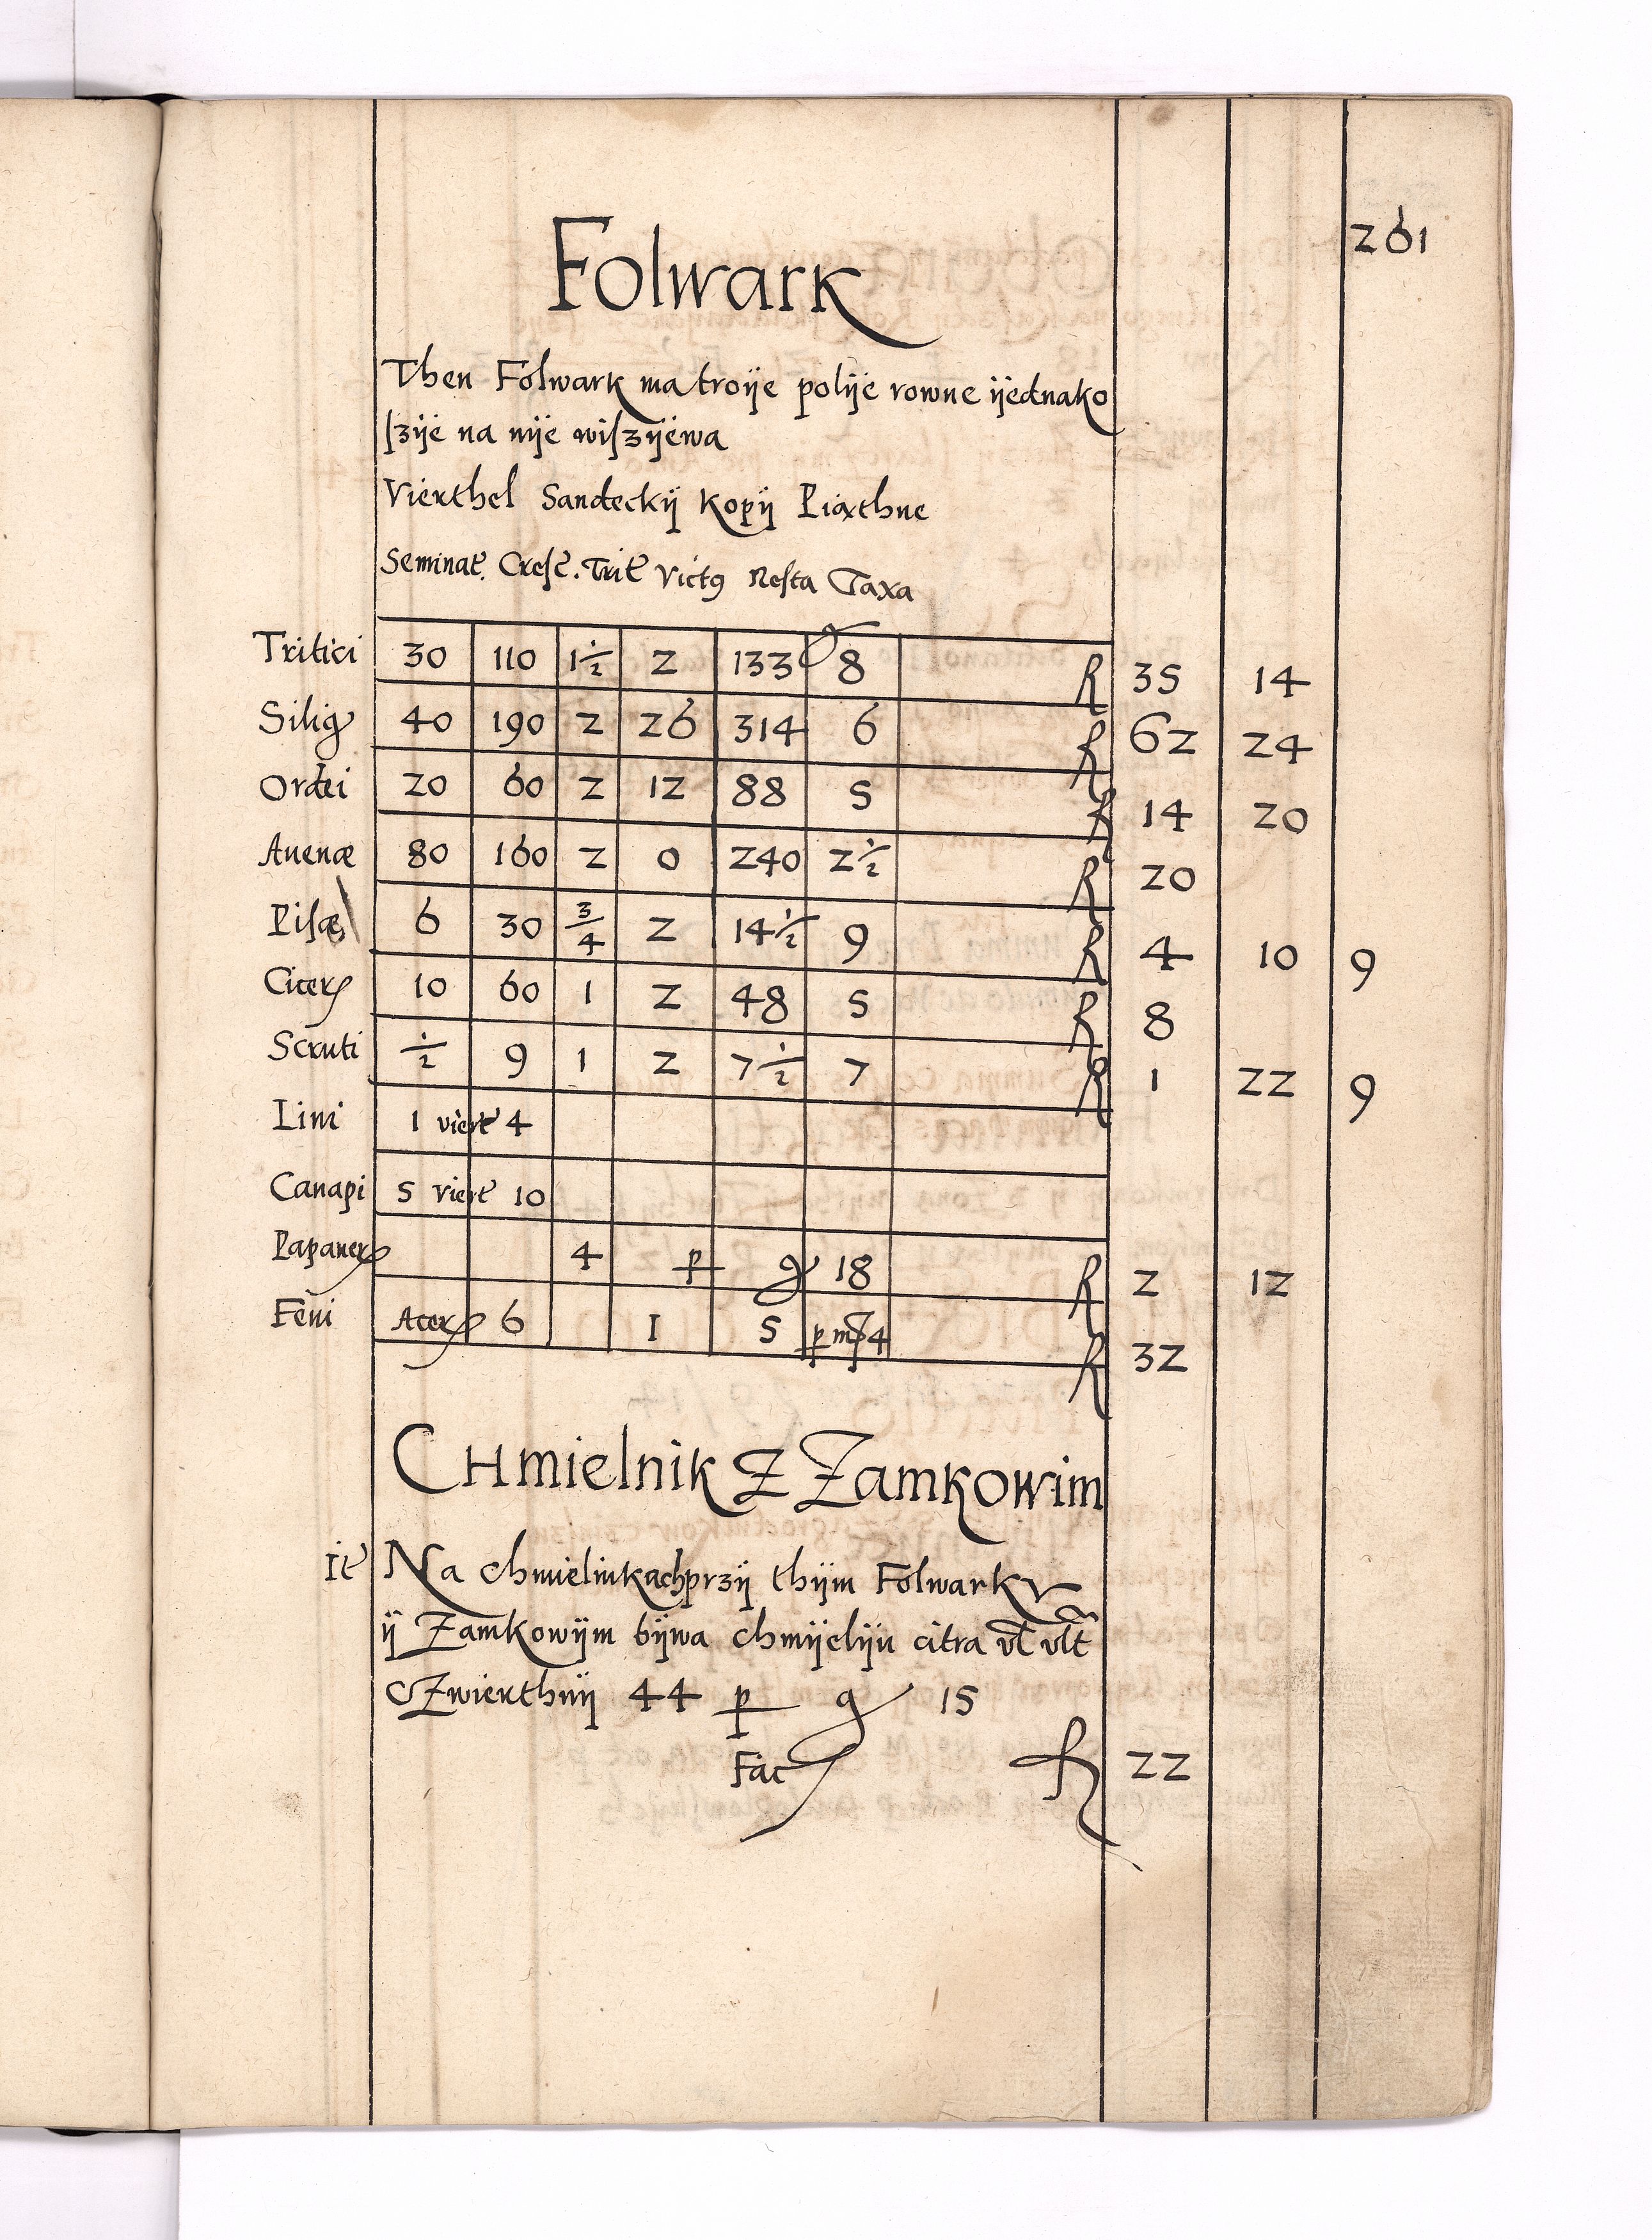 261
Folwark
Then Folwark ma troÿe polÿe rowne ÿednako
szÿe na nÿe wiszÿewa
Vierthel Sandeckÿ kopÿ Piathne
Seminat. Cresc. Trit Victg Resta Taxa
Tritici 30 110 1½ 2 133 g 8 R 35 14
Silig 40 190 2 26 314 6 R 62 24
Ordei 20 60 2 12 88 5 R 14 20
Auenæ 80 160 2 0 240 2½ R 20
Pisæ 6 30 ¾ 2 14½ 9 R 4 10 9
Cicer 10 60 1 2 48 5 R 8
Scruti ½ 9 1 2 7½ 7 R 1 22 9
Lini 1 viert 4
Canapi 5 viert 10
Papauer 4 p g 18 R 2 12
Feni Acer 6 1 5 p 4 R 32
CHmielnik Z Zamkowim
It Na chmielnikach przÿ thÿm Folwarku
ÿ Zamkowÿm bÿwa chmÿelÿu citra vl vlt
Czwierthnÿ 44 p g 15
Fac R 22